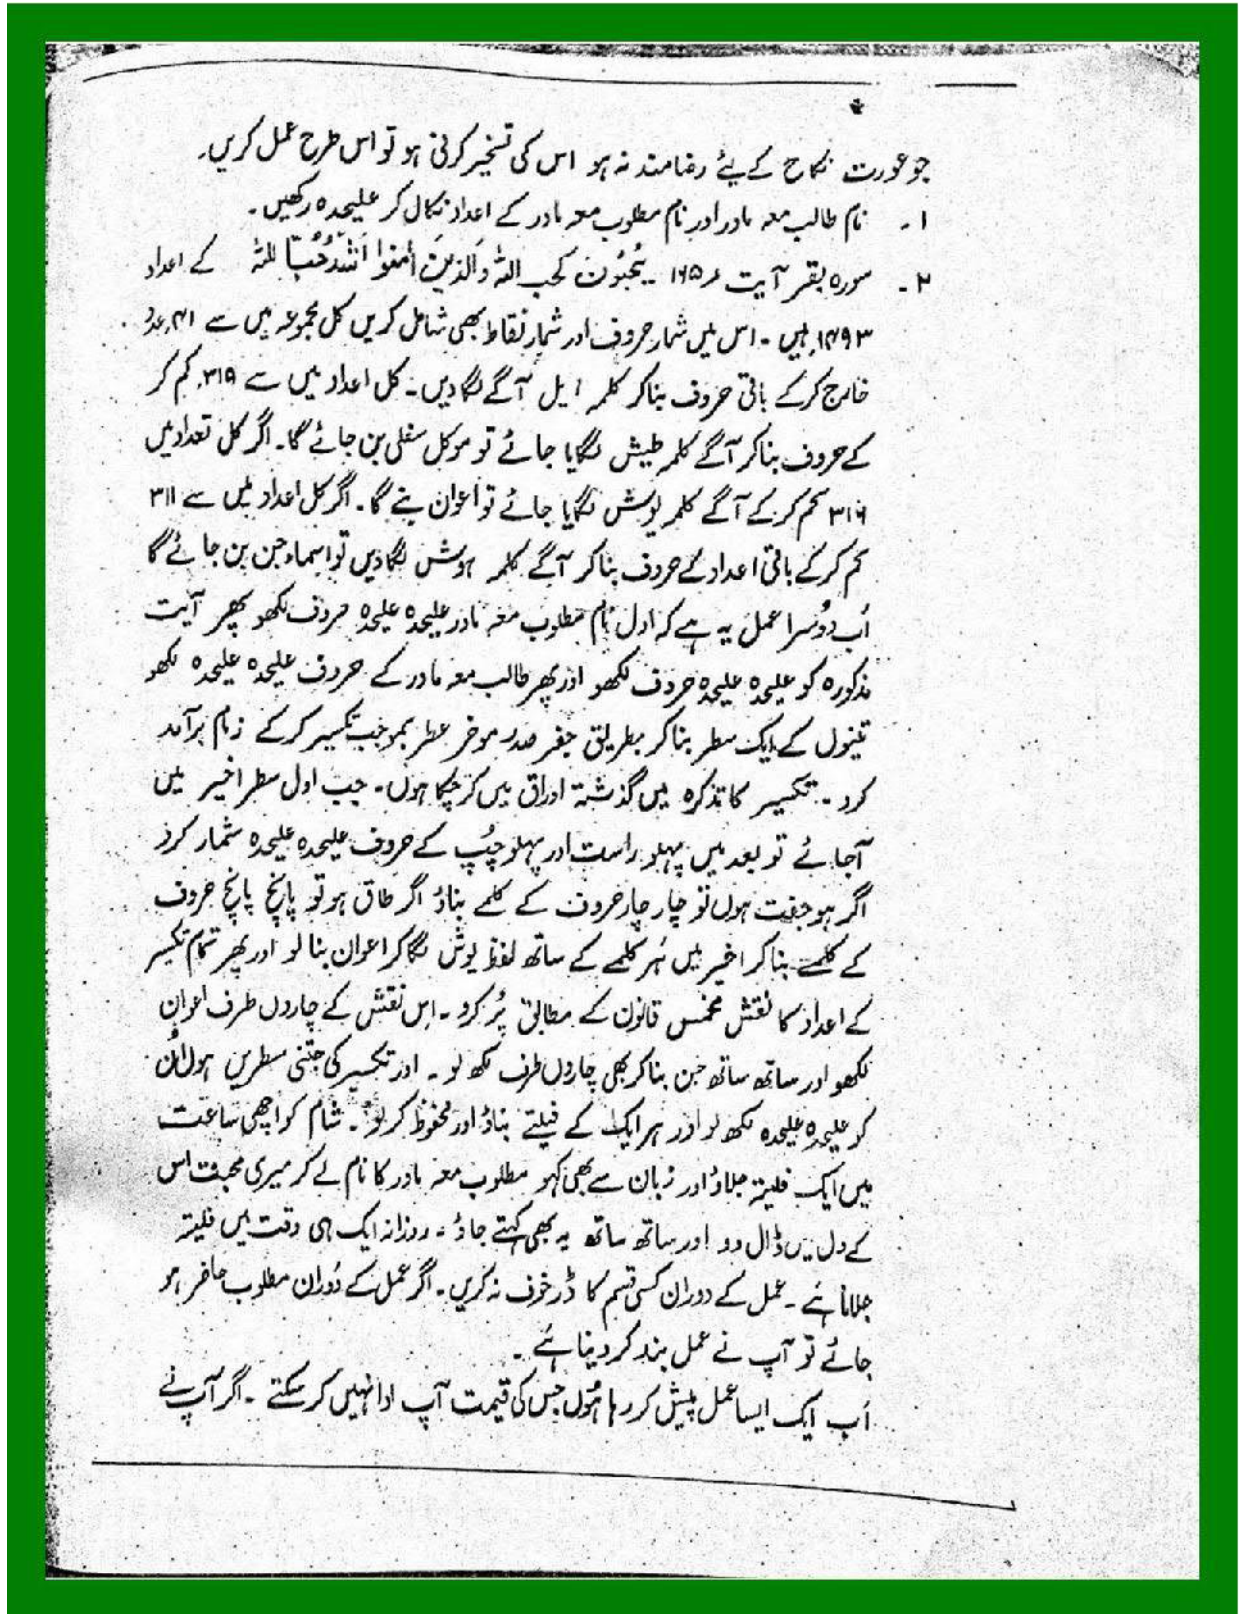 جو عورت نکاح کے لیئے رضامند نہ ہو اس کی تسخیر کرنی ہو تو اس طرح عمل کریں۔
۱۔ نام طالب معہ مادر اور نام مطلوب معہ مادر کے اعداد نکال کر علیحدہ رکھیں۔
۲۔ سورہ بقر آیت ۱۶۵ ۔ یُحِبُّون کحب اللہ وَالَّذِینَ اٰمنوا اَشَدُّ حُبًّا للہ کے اعداد
۱۴۹۳ ہیں ۔ اس میں شمار حروف اور شمار نقاط بھی شامل کریں کل مجموعہ میں سے ۴۱ عدد
خارج کرکے باقی حروف بناکر کلمہ ایل آگے لگا دیں۔ کل اعداد میں سے ۳۱۹ کم کر
کے حروف بناکر آگے کلمہ طیش لگایا جائے تو موکل سفلی بن جائے گا۔ اگر کل تعداد میں
۳۱۶ کم کرکے آگے کلمہ یوش لگایا جائے تو اعوان بنے گا۔ اگر کل اعداد میں سے ۳۱۱
کم کرکے باقی اعداد کے حروف بناکر آگے کلمہ ہوش لگا دیں تو اسماء جن بن جائے گا
اَب دُوسرا عمل یہ ہے کہ اول نام مطلوب معہ مادر علیحدہ علیحدہ حروف لکھو پھر آیت
مذکورہ کو علیحدہ علیحدہ حروف لکھو اور پھر طالب معہ مادر کے حروف علیحدہ علیحدہ لکھو
تینوں کے ایک سطر بناکر بطریق جفر صدر موخر بموجب تکسیر کرکے زمام برآمد
کرو ۔ تکسیر کا تذکرہ میں گذشتہ اوراق میں کرچکا ہوں۔ جب اول سطر اخیر میں
آجائے تو بعد میں پہلو راست اور پہلو چپ کے حروف علیحدہ علیحدہ شمار کرو
اگر ہو جفت ہوں تو چار چار حروف کے کلمے بناؤ اگر طاق ہو تو پانچ پانچ حروف
کے کلمے بناکر اخیر میں ہر کلمے کے ساتھ لفظ یوش لگاکر اعوان بنا لو اور پھر تمام تکسیر
کے اعداد کا نقش مخمس قانون کے مطابق پُر کرو ۔ اس نقش کے چاروں طرف اعوان
لکھو اور ساتھ ساتھ جن بناکر بھی چاروں طرف لکھ لو ۔ اور تکسیر کی جتنی سطریں ہوں اُن
کو علیحدہ علیحدہ لکھ لو اور ہر ایک کے فیلتے بناؤ اور محفوظ کرلو ۔ شام کو اچھی ساعت
میں ایک فلیتہ جلاؤ اور زبان سے بھی کہو مطلوب معہ مادر کا نام لے کر میری محبت اس
کے دل میں ڈال دو اور ساتھ ساتھ یہ بھی کہتے جاؤ ۔ روزانہ ایک ہی وقت میں فلیتہ
جلانا ہے ۔ عمل کے دوران کسی قسم کا ڈر خوف نہ کریں ۔ اگر عمل کے دُوران مطلوب حاضر ہو
جائے تو آپ نے عمل بند کر دینا ہے ۔
اَب ایک ایسا عمل پیش کر رہا ہُوں جس کی قیمت آپ ادا نہیں کر سکتے ۔ اگر آپ نے